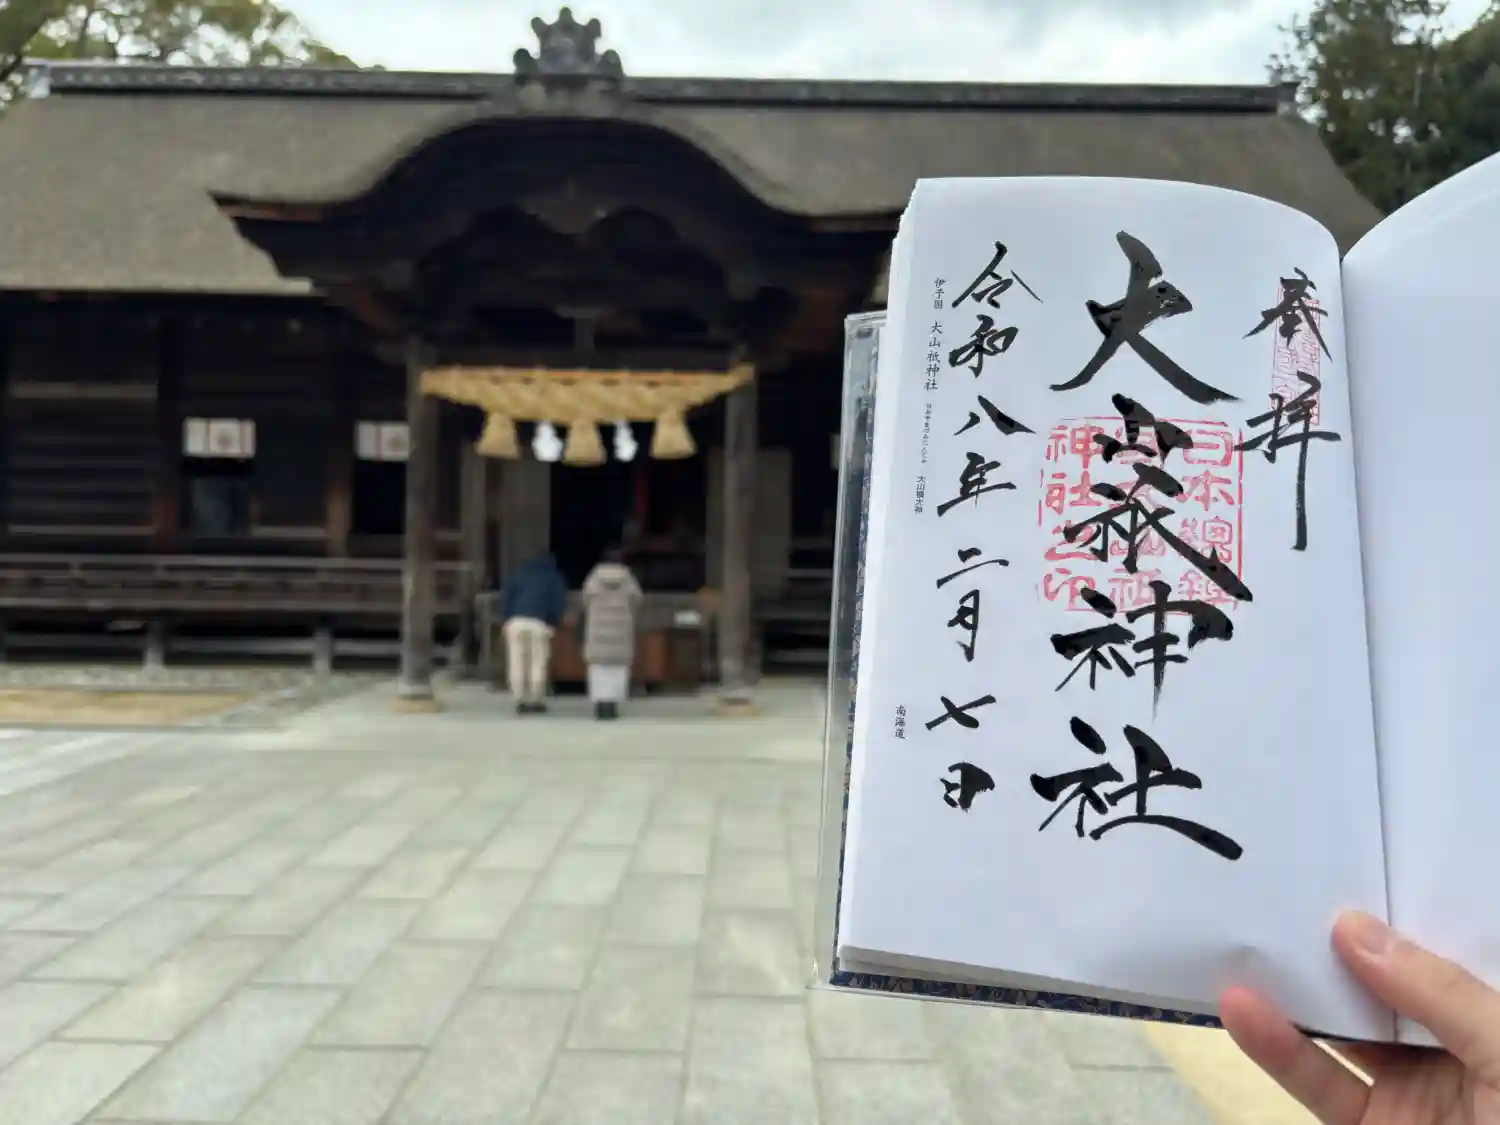 奉拝
大山祇神社
日本總鎮
守大山祇
神社之印
令和八年二月七日
伊予国 大山祇神社
大山積大神
南海道